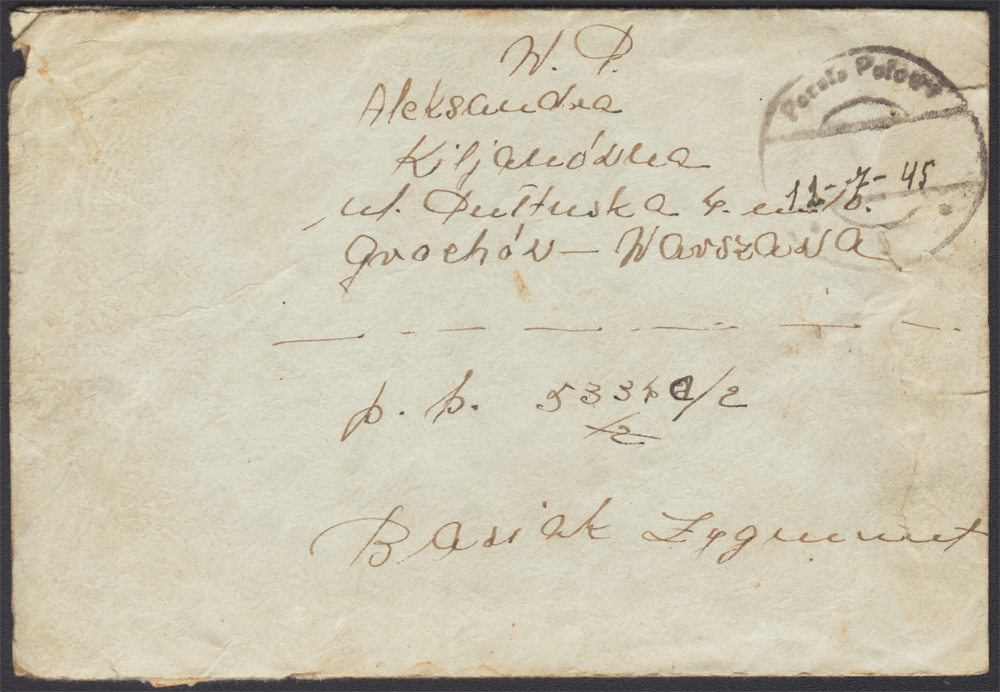 W. P.
Aleksandra
Kiljanówna
ul. Pułtuska 4. m.
Grochów – Warszawa
Poczta Polowa
11-7-45
p. p. 533 /2
/2
Basiak Zygmunt